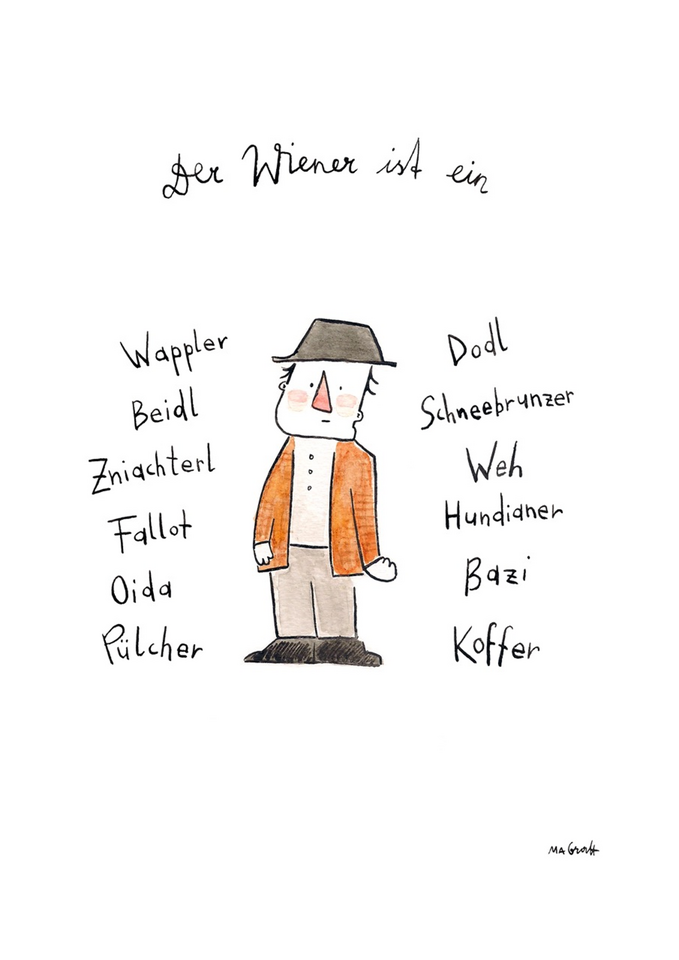 Der Wiener ist ein
Wappler
Beidl
Zniachterl
Fallot
Oida
Pülcher
Dodl
Schneebrunzer
Weh
Hundianer
Bazi
Koffer